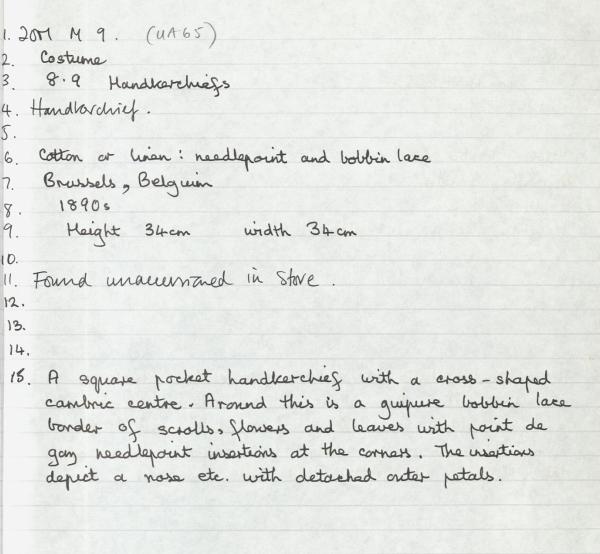 1. 2001 M 9. (UA65)
2. Costume
3. 8.9 Handkerchiefs
4. Handkerchief.
5.
6. Cotton or linen: needlepoint and bobbin lace
7. Brussels, Belguim
8. 1890s
9. Height 34cm width 34cm
10.
11. Found unaccessioned in Store.
12.
13.
14.
15. A square pocket handkerchief with a cross-shaped
cambric centre. Around this is a guipure bobbin lace
border of scrolls, flowers and leaves with point de
gaz needlepoint insertions at the corners. The insertions
depict a rose etc. with detached outer petals.